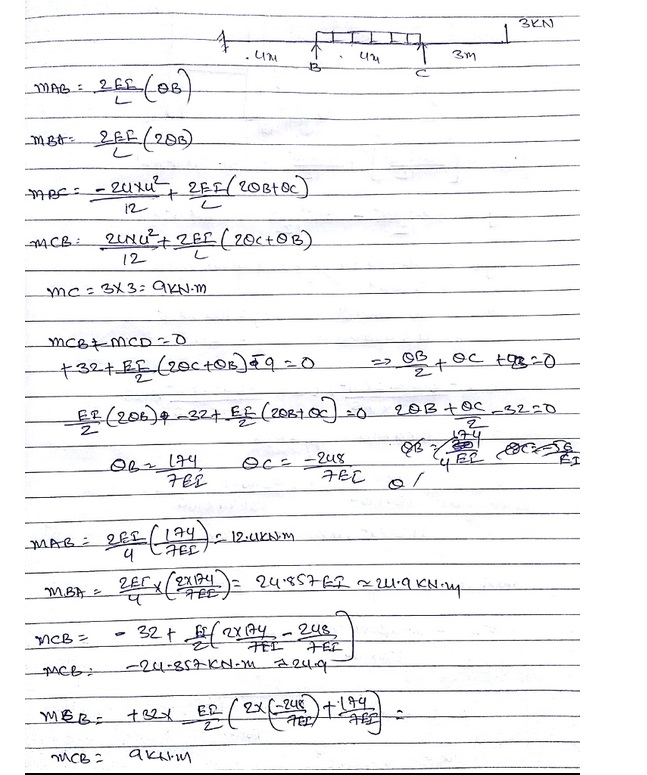 3KN
.4m B .4m C 3m
MAB = 2EI/L (θB)
MBA = 2EI/L (2θB)
MBC = -24×4²/12 + 2EI/L (2θB+θC)
MCB: 24×4²/12 + 2EI/L (2θC+θB)
MC = 3×3 = 9KN.m
MCB+MCD=0
+32+EI/2 (2θC+θB) -9 = 0 => θB/2 + θC +23=0
EI/2 (2θB) + -32+EI/2 (2θB+θC) =0 2θB + θC/2 -32=0
θB = 174/7EI θC = -248/7EI
MAB = 2EI/4 (174/7EI) = 12.4KN.m
MBA = 2EI/4 × (2×174/7EI) = 24.857EI ≈ 24.9 KN.m
MCB = -32 + EI/2 (2×174/7EI - 248/7EI)
MCB: -24.857KN-m ≈ 24.9
MCB = +32× EI/2 (2×(-248/7EI) + 174/7EI) =
MCB = 9KN.m